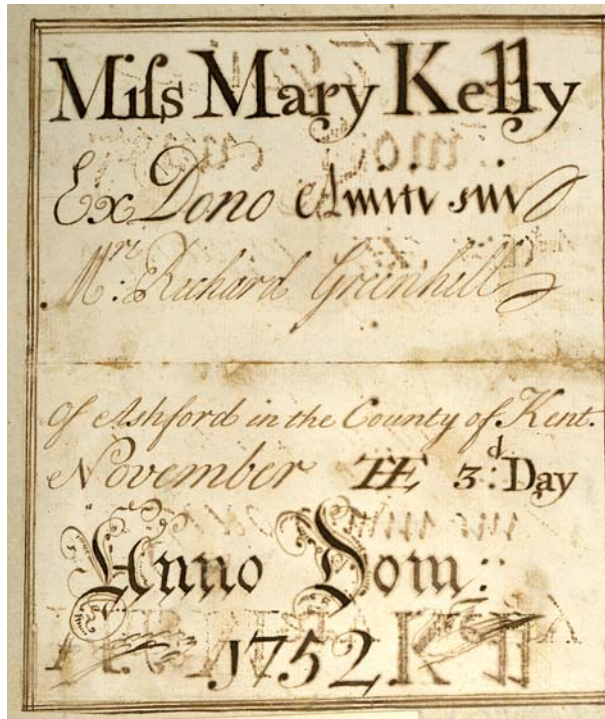 Miſs Mary Kelly
Ex Dono Amici sui
Mr: Richard Greenhill
Of Ashford in the County of Kent.
November THE 3d: Day
Anno Dom:
1752